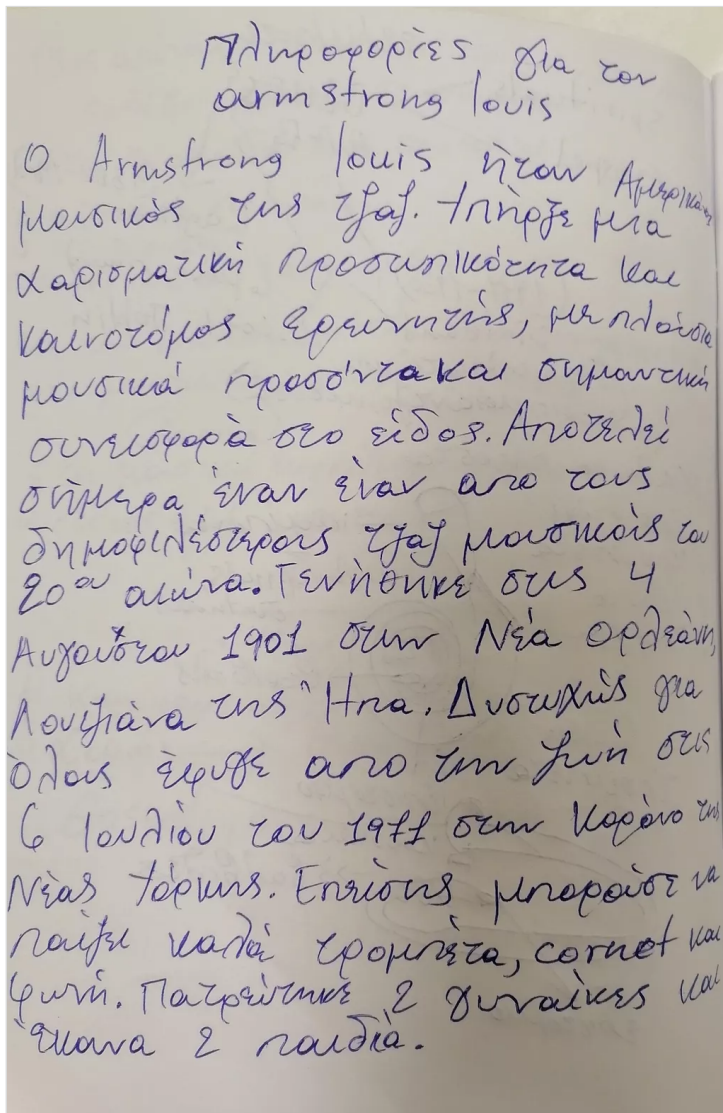 Πληροφορίες για τον
armstrong louis
Ο Armstrong louis ήταν Αμερικάνος
μουσικός της τζαζ. Υπήρξε μια
χαρισματική προσωπικότητα και
καινοτόμος ερευνητής, με πλούσια
μουσικά προσόντα και σημαντική
συνεισφορά στο είδος. Αποτελεί
σήμερα έναν έναν απο τους
δημοφιλέστερους τζαζ μουσικούς του
20ου αιώνα. Γενήθηκε στις 4
Αυγούστου 1901 στην Νέα Ορλεάνη,
Λουιζιάνα της Ηπα. Δυστυχώς για
όλους έφυγε απο την ζωή στις
6 Ιουλίου του 1971 στην Κορόνο της
Νέας Υόρκης. Επείσης μπορούσε να
παίζει καλά τρομπέτα, cornet και
φωνή. Πατρεύτηκε 2 γυναίκες και
έκανα 2 παιδιά.